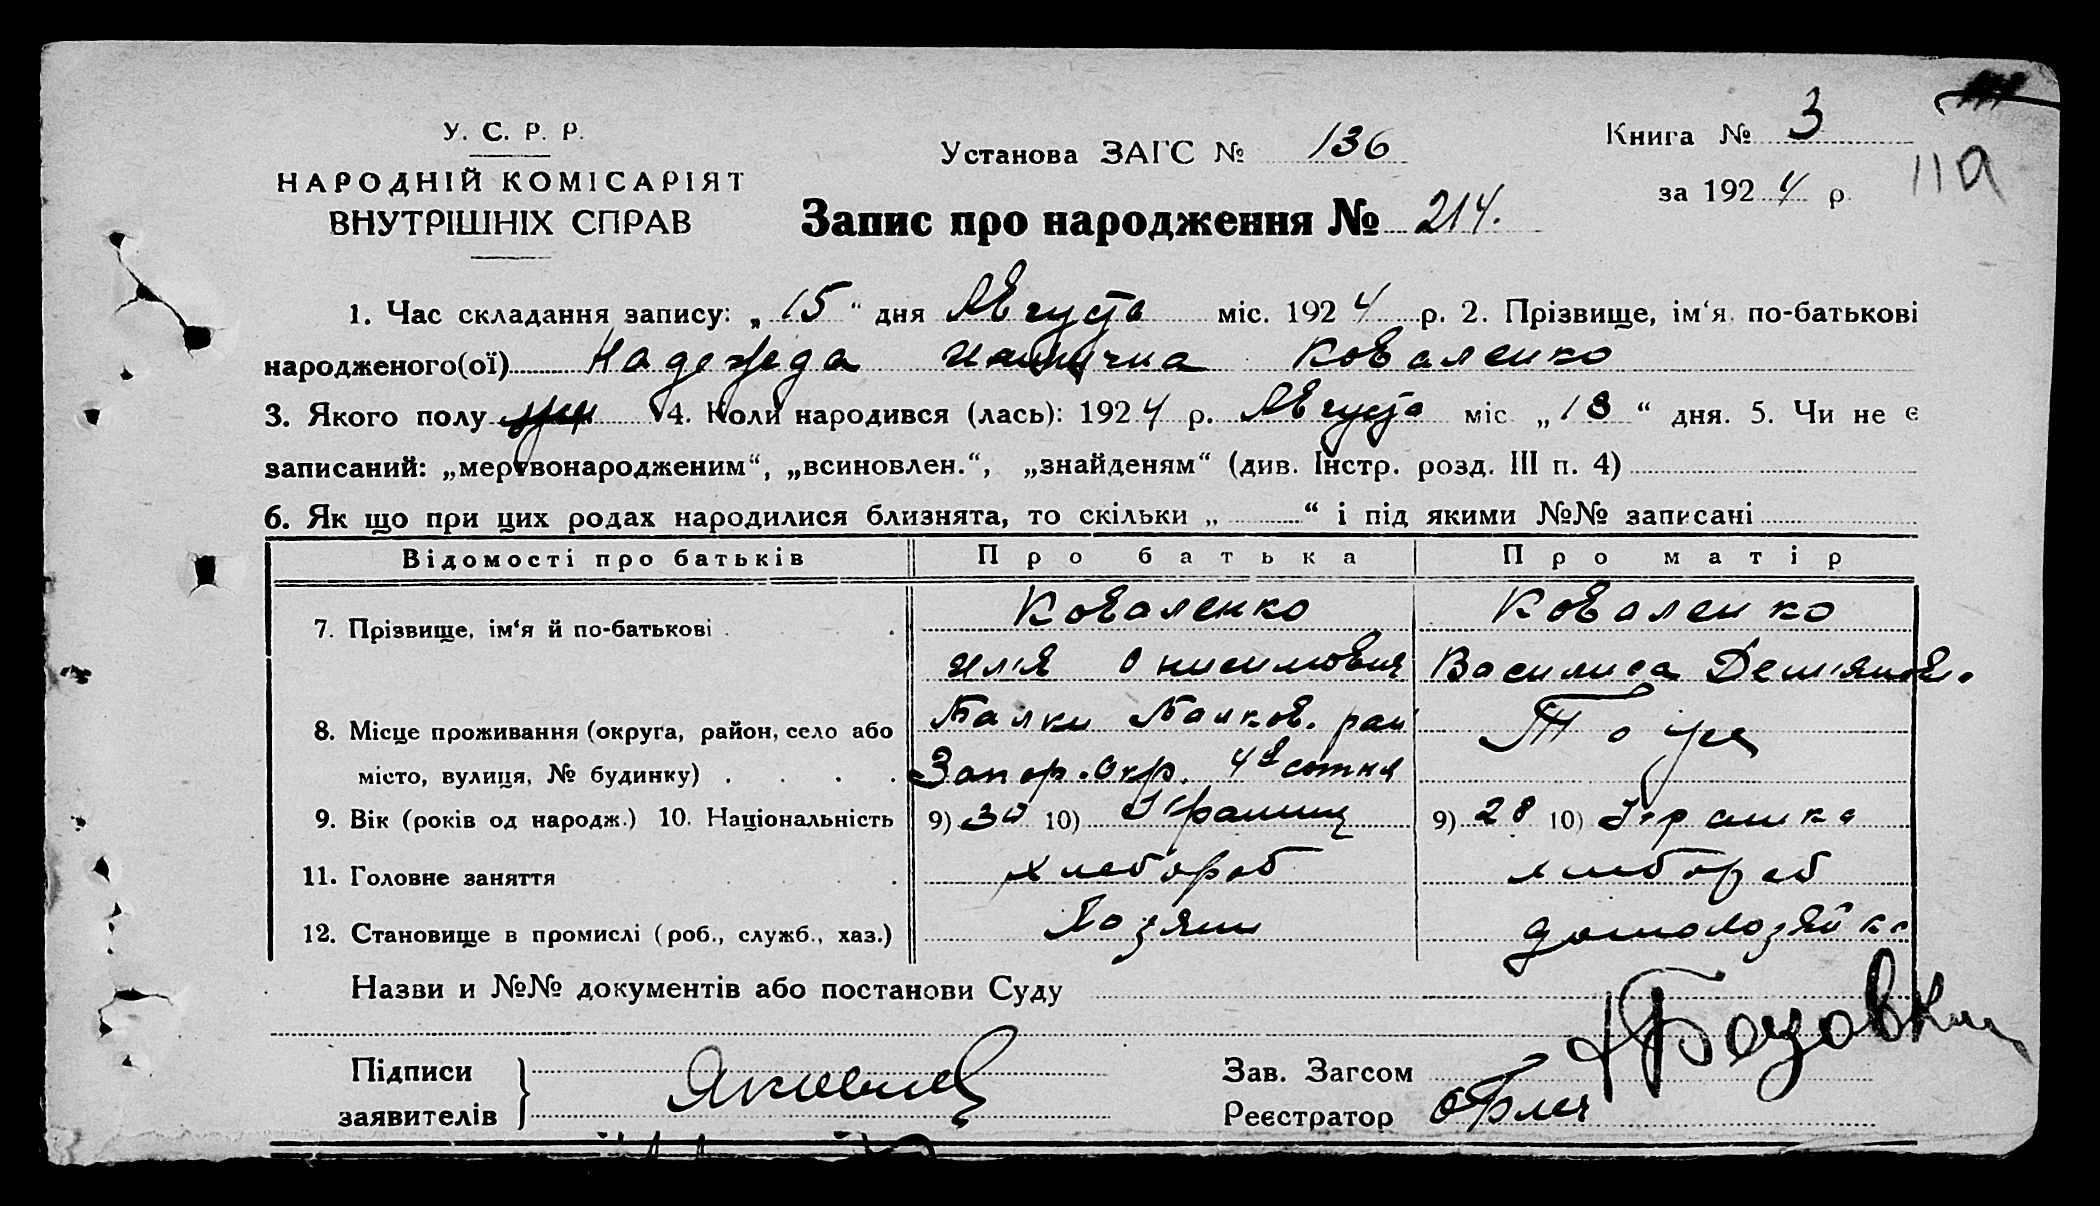 У. С. Р. Р.
НАРОДНІЙ КОМІСАРІЯТ
ВНУТРІШНІХ СПРАВ
Установа ЗАГС № 136
Запис про народження № 214.
Книга № 3
за 1924 р.
11а
1. Час складання запису: „15“ дня Августа міс. 1924 р. 2. Прізвище, ім‘я, по-батькові
народженого(ої) Надежда Коваленко
3. Якого полу 4. Коли народився (лась): 1924 р. Августа міс. „13“ дня. 5. Чи не є
записаний: „мертвонародженим“, „всиновлен.“, „знайденям“ (див. Інстр. розд. III п. 4)
6. Як що при цих родах народилися близнята, то скільки „ “ і під якими №№ записані
Відомості про батьків Про батька Про матір
7. Прізвище, ім‘я й по-батькові Коваленко Коваленко
Илья Онисимович Василиса Демьянов.
8. Місце проживання (округа, район, село або Балки Балков. рай Тоже
місто, вулиця, № будинку) Запор. Окр. 4я сотня
9. Вік (років од народж.) 10. Національність 9) 30 10) Украинец 9) 28 10) Украинка
11. Головне заняття хлебороб хлебороб
12. Становище в промислі (роб., служб., хаз.) Хозяин домохозяйка
Назви и №№ документів або постанови Суду
Підписи
заявителів
Зав. Загсом
Реєстратор